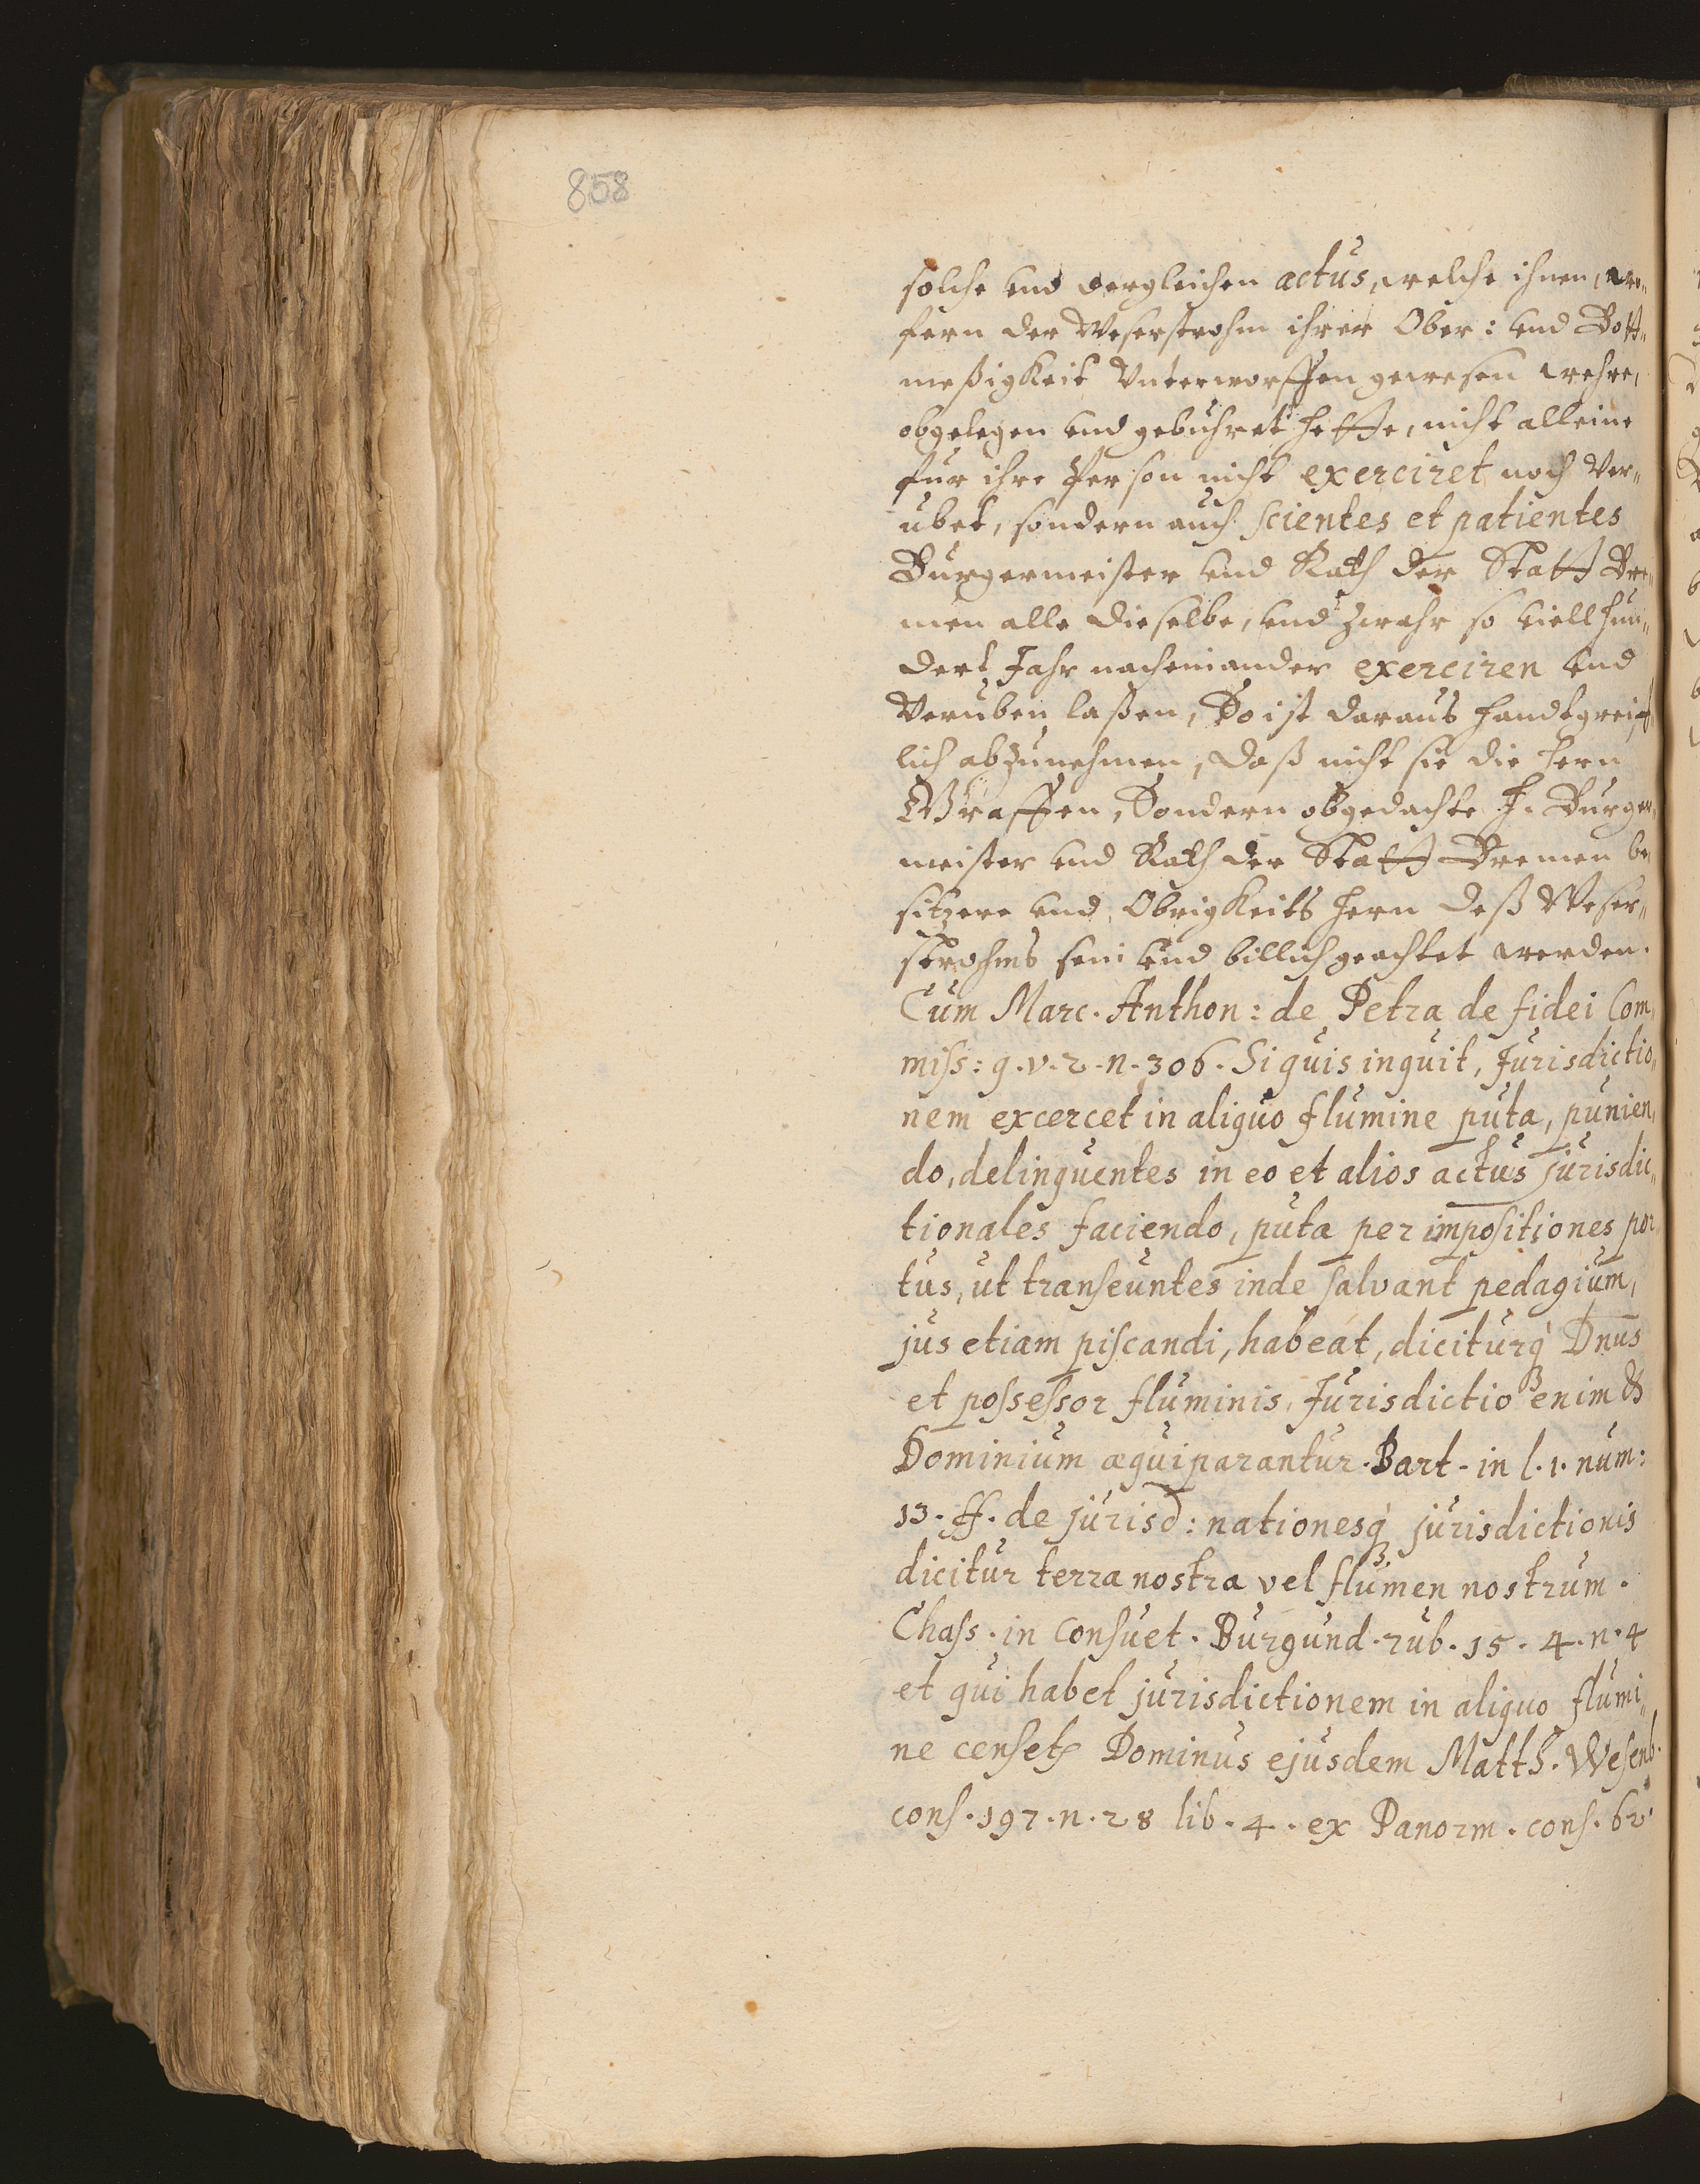 858
solche vnd dergleichen actus, welche ihnen, wo„
fern der Weserstrohm ihrer Ober: vnd Bott„
meßigkeit Vnterworffen gewesen wehre,
obgelegen vnd gebuhret hette, nicht alleine
fur ihre Person nicht exerciret noch Ver„
ubet, sondern auch scientes et patientes
Burgermeister vnd Rath der Statt Bre„
men alle dieselbe, vnd zwahr so viell hun„
dert Jahr nacheinander exerciren vnd
Veruben laßen, So ist daraus handtgreif„
lich abzunehmen, daß nicht sie die Hern
Graffen, Sondern obgedachte H. Burger„
meister vnd Rath der Statt Bremen be„
sitzere vnd Obrigkeits Hern deß Weser„
strohms sein vnd billich geachtet werden.
Cum Marc. Anthon: de Petra de fidei Com„
miss: q. v. 2. n. 306. Si quis inquit, Jurisdictio„
nem excercet in aliquo flumine puta, punien„
do, delinquentes in eo et alios actus jurisdic„
tionales faciendo, puta per impositiones por„
tus, ut transeuntes inde salvant pedagium,
jus etiam piscandi, habeat, diciturq Dnus
et possessor fluminis, Jurisdictio enim &
Dominium æquiparantur. Bart. in l. 1. num:
13. ff. de jurisd: nationesq jurisdictionis
dicitur terra nostra vel flumen nostrum.
Chass. in Consuet. Burgund. rub. 15. 4. n. 4
et qui habet jurisdictionem in aliquo flumi„
ne censetr Dominus ejusdem Matth. Wesenb.
cons. 197. n. 28 lib. 4. ex Panorm. cons. 62.